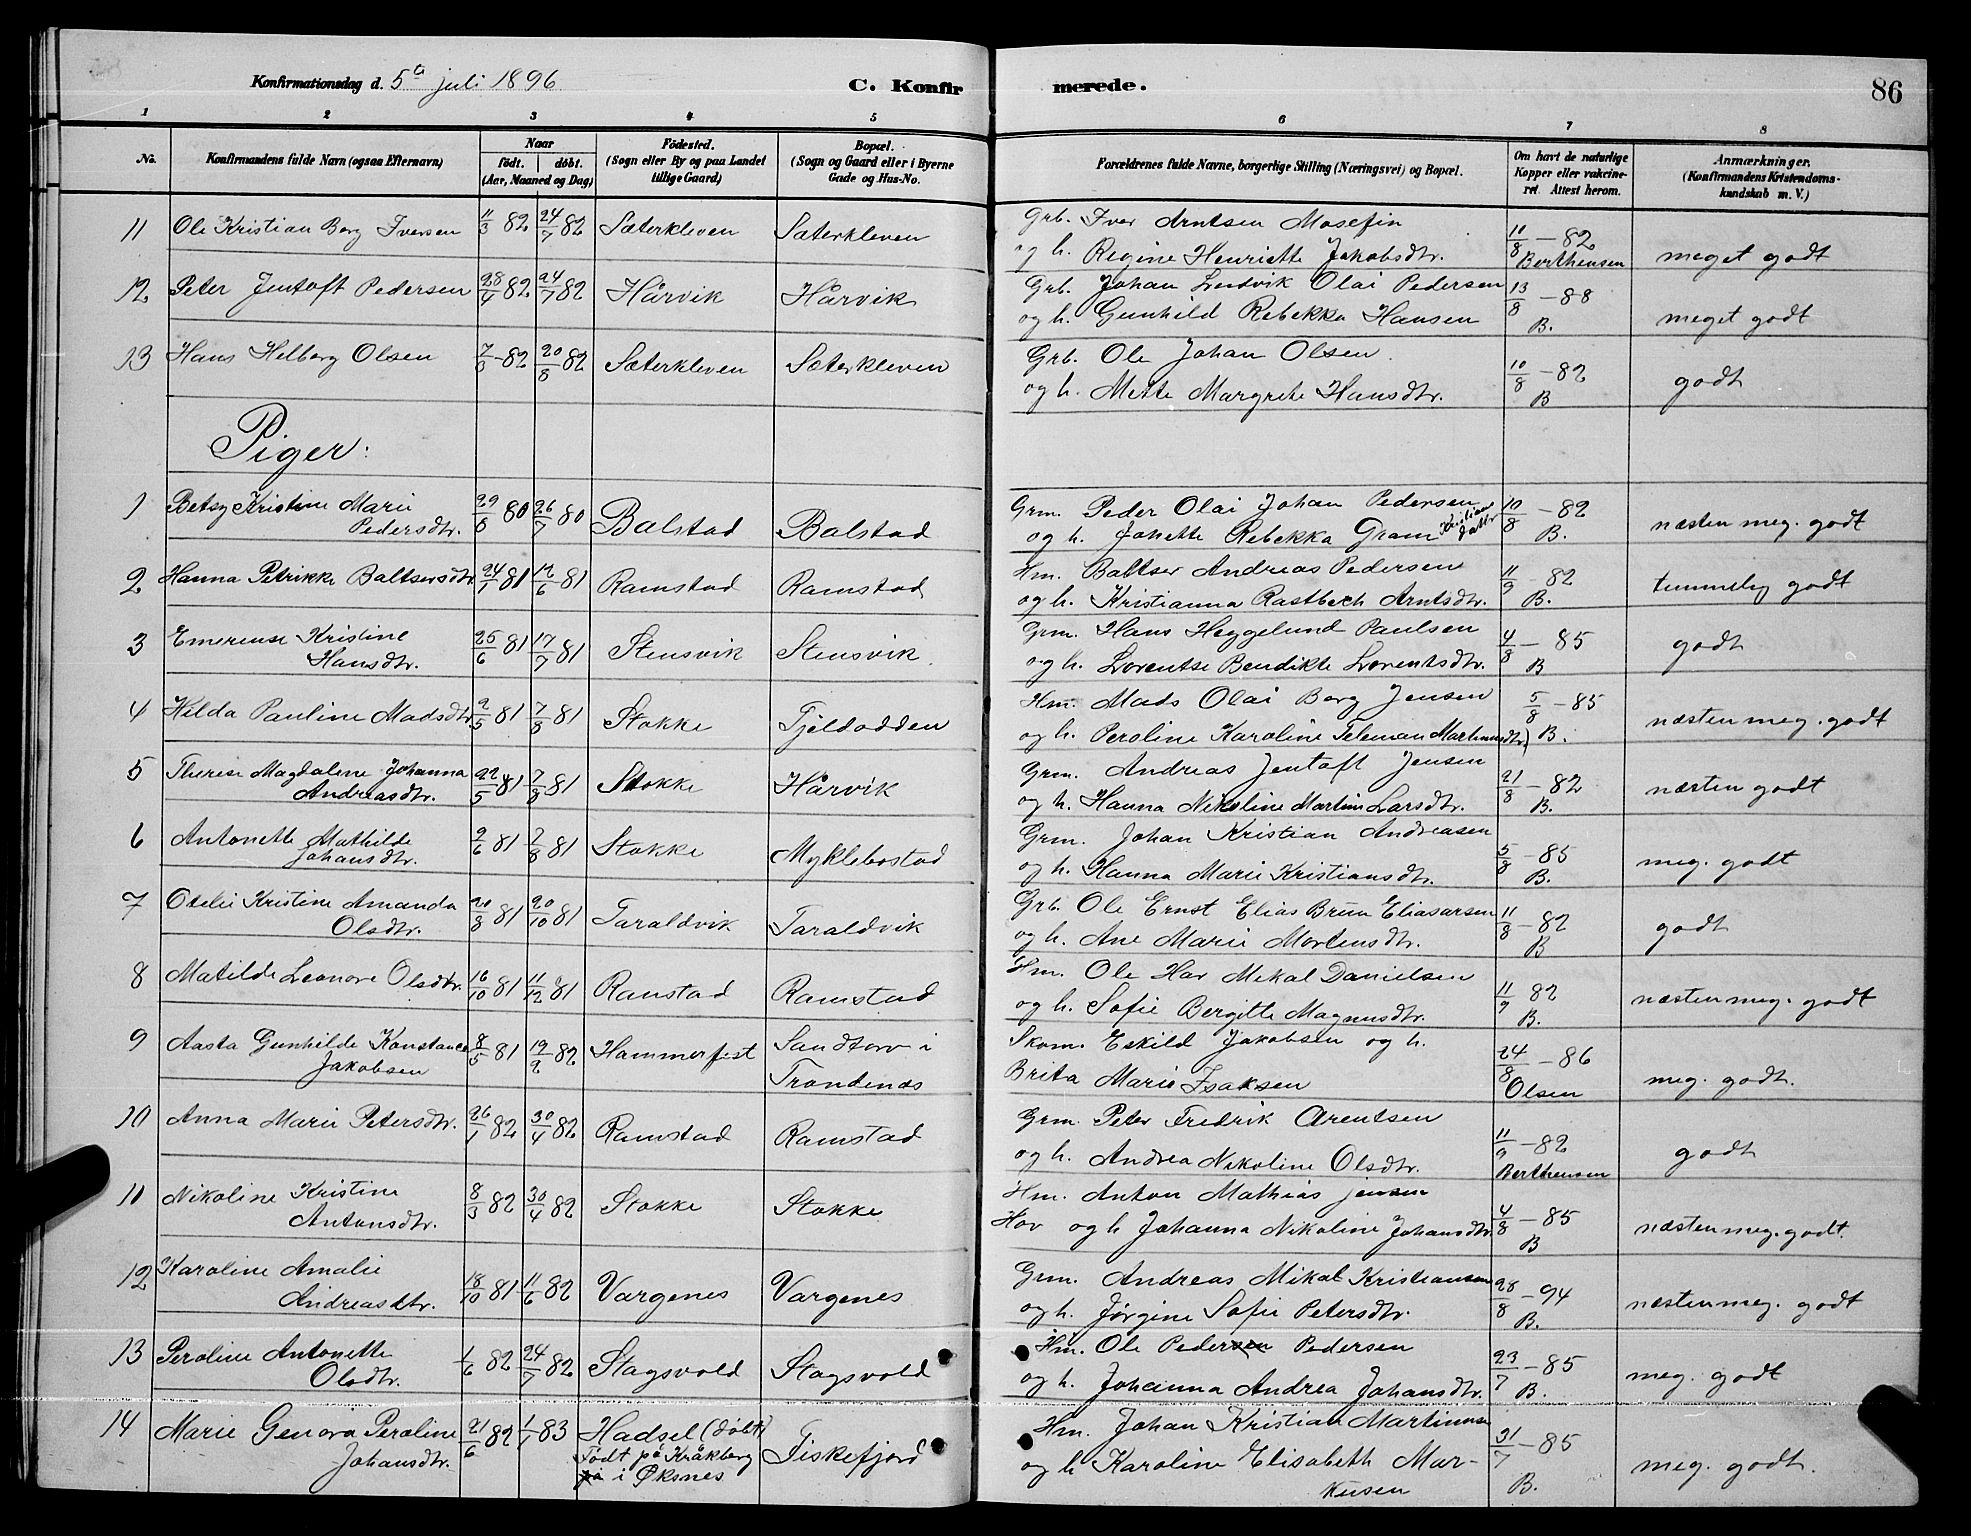 Konfirmationsdag d. 5te juli 1896 C. Konfirmerede. 86
1 2 3 4 5 6 7 8
No. Konfirmandens fulde Navn (ogsaa Efternavn) Naar født. døbt. (Aar, Maaned og Dag) Fødested. (Sogn eller By og paa Landet tillige Gaard) Bopæl. (Sogn og Gaard eller i Byerne Gade og Hus-No. Forældrenes fulde Navne, borgerlige Stilling (Næringsvei) og Bopæl. Om havt de naturlige Kopper eller vakcineret. Attest herom. Anmærkninger. (Konfirmandens Kristendomskundskab m. V.)
11 Ole Kristian Berg Iversen 11/3 82 24/7 82 Sæterkleven Sæterkleven Grb. Iver Arntsen Mosefin 11/8 – 82
og h. Regine Henriette Jakobsdtr. Berthensen meget godt
12 Peter Jentoft Pedersen 28/4 82 24/7 82 Hårvik Hårvik Grb. Johan Ludvik Olai Pedersen 13/8 – 88
og h. Gunhild Rebekka Hansen B. meget godt
13 Hans Helberg Olsen 7/6 – 82 20/8 82 Sæterkleven Sæterkleven Grb. Ole Johan Olsen. 10/8 – 82
og h. Mette Margrete Hansdtr. B godt
Piger:
1 Betsy Kristine Marie 29/6 80 26/7 80 Balstad Balstad Grm. Peder Olai Johan Pedersen 10/8 – 82
Pedersdtr. og h. Janette Rebekka Gram B. næsten meg. godt
2 Hanna Petrikke Baltsersdtr. 24/1 81 12/6 81 Ramstad Ramstad Hm. Baltser Andreas Pedersen 11/9 – 82
og h. Kristianna Rastbech Arntsdtr. B. temmelig godt
3 Emerense Kristine 25/6 81 17/7 81 Stensvik Stensvik Grm. Hans Heggelund Paulsen 4/8 – 85
Hansdtr. og h. Lorentse Bendikte Lorentsdtr. B godt
4 Hilda Pauline Madsdtr. 2/5 81 7/8 81 Stokke Tjeldodden Hm. Mads Olai Berg Jensen 5/8 – 85
og h. Peroline Karoline Teleman Martinusdtr. B. næsten meg. godt
5 Therese Magdalene Johanna 22/5 81 7/8 81 Stokke Hårvik Grm. Andreas Jentoft Jensen 21/8 – 82
Andreasdtr. og h. Hanna Nikoline Martine Larsdtr. B. næsten godt
6 Antonette Mathilde 9/6 81 7/8 81 Stokke Myklebostad Grm. Johan Kristian Andreasen 5/8 – 85
Johansdtr. og h. Hanna Marie Kristiansdtr. B. meg. godt
7 Otelie Kristine Amanda 20/8 81 20/10 81 Taraldvik Taraldvik Grb. Ole Ernst Elias Bruun Eliasarsen 11/8 – 82
Olsdtr. og h. Ane Marie Mortensdtr. B godt
8 Matilde Leonore Olsdtr. 16/10 81 11/12 81 Ramstad Ramstad Hm. Ole Hav Mikal Danielsen 11/9 82
og h. Sofie Bergitte Magnusdtr. B. næsten meg. godt
9 Aasta Gunhilde Konstance 8/5 81 19/2 82 Hammerfest Sandtorv i Skom. Eskild Jakobsen og h. 24/8 – 86
Jakobsen Trondenæs Brita Marie Isaksen Olsen meg. godt.
10 Anna Marie Petersdtr. 26/1 82 30/4 82 Ramstad Ramstad Grm. Peter Fredrik Arentsen 11/9 – 82
og h. Andrea Nikoline Olsdtr. Berthensen godt
11 Nikoline Kristine 8/3 82 30/4 82 Stokke Stokke Hm. Anton Mathias Jensen 4/8 – 85
Antonsdtr. Hov og h Johanna Nikoline Johansdtr. B næsten meg. godt.
12 Karoline Amalie 18/10 81 11/6 82 Vargenes Vargenes Grm. Andreas Mikal Kristiansen 28/8 – 94
Andreasdtr. og h. Jørgine Sofie Petersdtr. B. næsten meg. godt
13 Peroline Antonette 1/6 82 24/7 82 Stagsvold Stagsvold Hm. Ole Pedersen Pedersen 23/7 – 85
Olsdtr. og h. Johanna Andrea Johansdtr. B. meg. godt
14 Marie Genora Peroline 21/6 82 1/1 83 Hadsel (døbt) Fiskefjord Hm. Johan Kristian Martinusen 31/7 – 85
Johansdtr. Født på Kråkberg og h Karoline Elisabeth Mar-
i Øksnes kusen B. meg. godt.